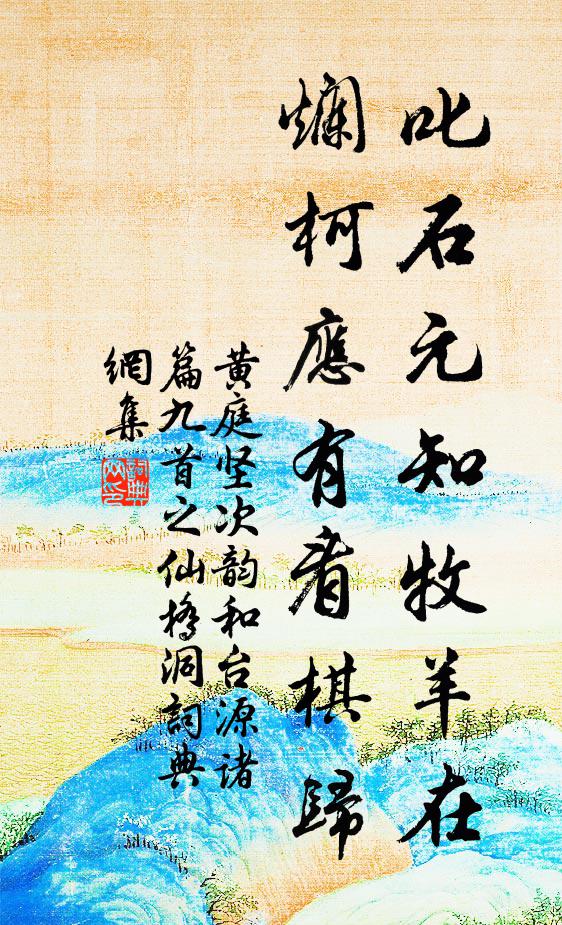 叱石元知牧羊在
爛柯應有看棋歸
黄庭坚次韵和台源诸
篇九首之仙橋洞詞典
網集
詞典